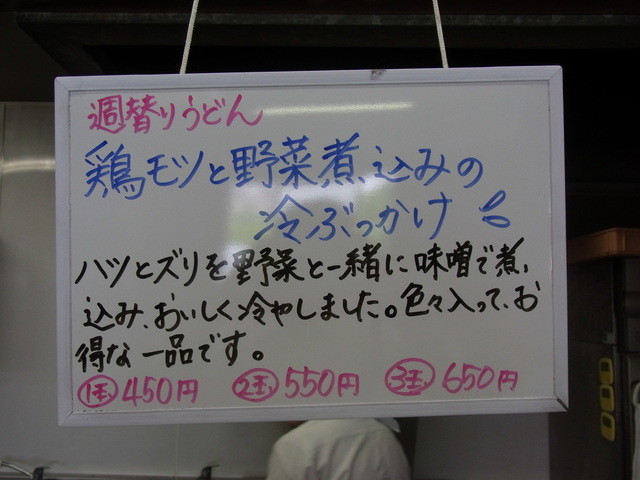 週替りうどん
鶏モツと野菜煮込みの
冷ぶっかけ
ハツとズリを野菜と一緒に味噌で煮
込み、おいしく冷やしました。色々入って、お
得な一品です。
1玉 450円 2玉 550円 3玉 650円